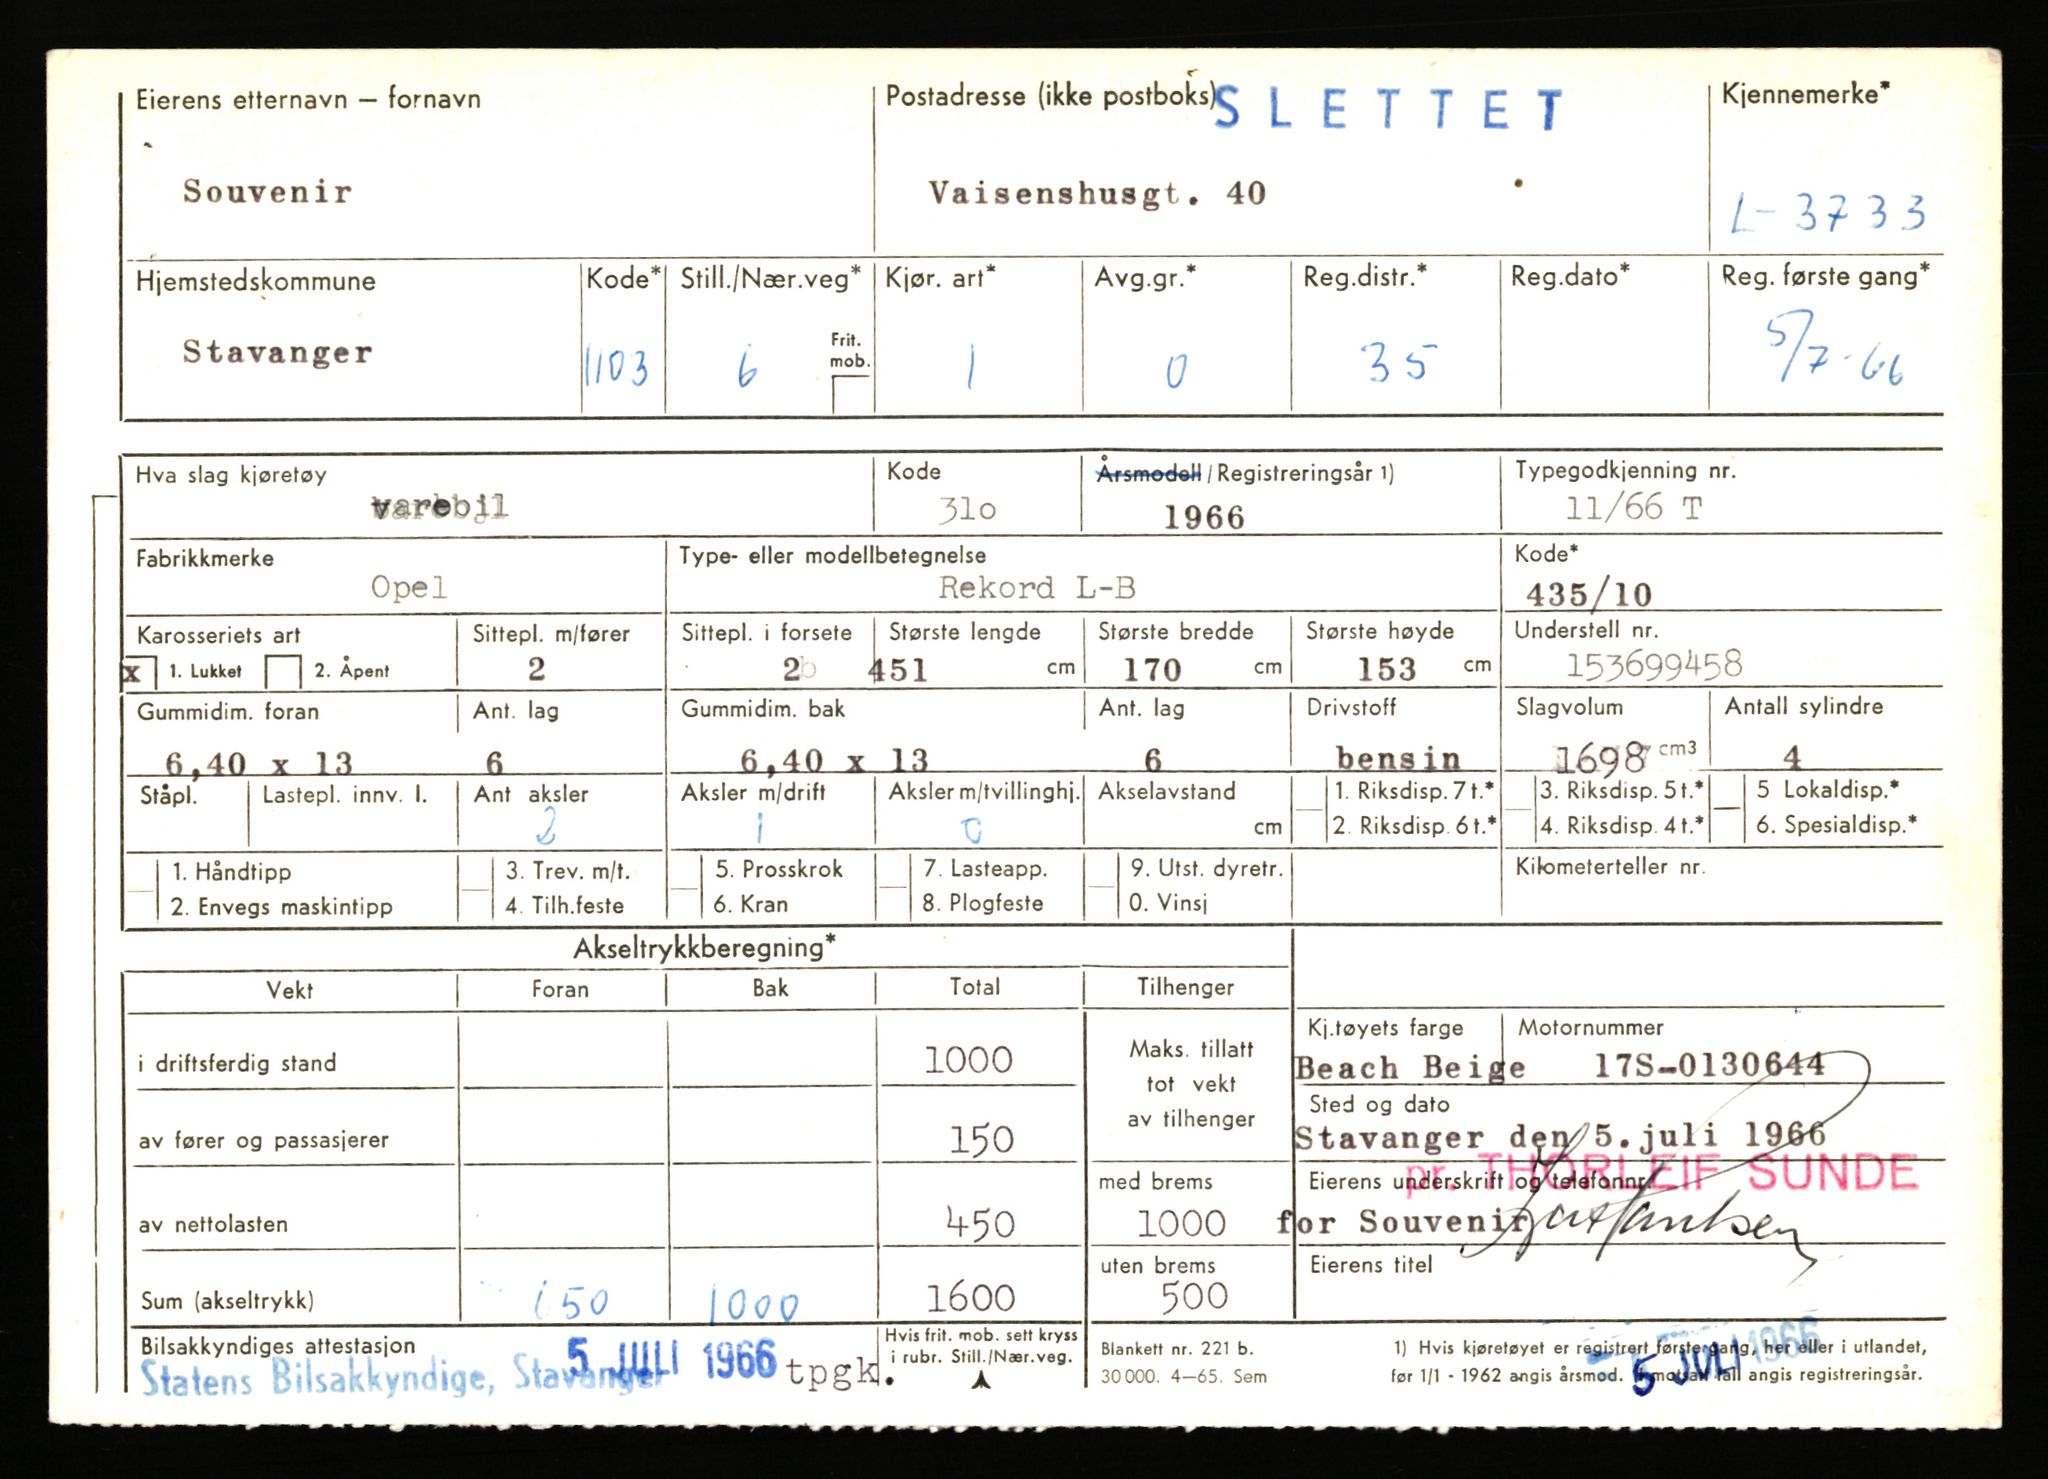 Eierens etternavn – fornavn
Souvenir
Postadresse (ikke postboks)
SLETTET
Vaisenshusgt. 40
Kjennemerke*
L-3733
Hjemstedskommune
Stavanger
Kode*
1103
Still./Nær.veg*
6
Frit. mob.
Kjør. art*
1
Avg.gr.*
0
Reg.distr.*
35
Reg.dato*
Reg. første gang*
5/7-66
Hva slag kjøretøy
varebil
Kode
31o
Årsmodell / Registreringsår 1)
1966
Typegodkjenning nr.
11/66 T
Fabrikkmerke
Opel
Type- eller modellbetegnelse
Rekord L-B
Kode*
435/10
Karosseriets art
x 1. Lukket 2. Åpent
Sittepl. m/fører
2
Sittepl. i forsete
2
Største lengde
451 cm
Største bredde
170 cm
Største høyde
153 cm
Understell nr.
153699458
Gummidim. foran
6,40 x 13
Ant. lag
6
Gummidim. bak
6,40 x 13
Ant. lag
6
Drivstoff
bensin
Slagvolum
1698 cm3
Antall sylindre
4
Ståpl.
Lastepl. innv. l.
Ant aksler
2
Aksler m/drift
1
Aksler m/tvillinghj.
0
Akselavstand
cm
1. Riksdisp. 7 t.*
2. Riksdisp. 6 t.*
3. Riksdisp. 5 t.*
4. Riksdisp. 4 t.*
5 Lokaldisp.*
6. Spesialdisp.*
1. Håndtipp
2. Envegs maskintipp
3. Trev. m/t.
4. Tilh.feste
5. Prosskrok
6. Kran
7. Lasteapp.
8. Plogfeste
9. Utst. dyretr.
0. Vinsj
Kilometerteller nr.
Akseltrykkberegning*
Vekt Foran Bak Total Tilhenger
i driftsferdig stand 1000
av fører og passasjerer 150
av nettolasten 450
Sum (akseltrykk) 1000 1600
Maks. tillatt
tot vekt
av tilhenger
med brems
1000
uten brems
500
Kj.tøyets farge
Beach Beige
Motornummer
17S-0130644
Sted og dato
Stavanger den 5.juli 1966
pr. THORLEIF SUNDE
Eierens underskrift og telefonnr.
for Souvenir
Eierens titel
Bilsakkyndiges attestasjon
5 JULI 1966
Statens Bilsakkyndige, Stavanger
tpgk.
Hvis frit. mob. sett kryss
i rubr. Still./Nær.veg.
Blankett nr. 221 b.
30 000. 4–65. Sem
1) Hvis kjøretøyet er registrert første gang, her eller i utlandet,
før 1/1 - 1962 angis årsmod. I motsatt fall angis registreringsår.
5 JULI 1966